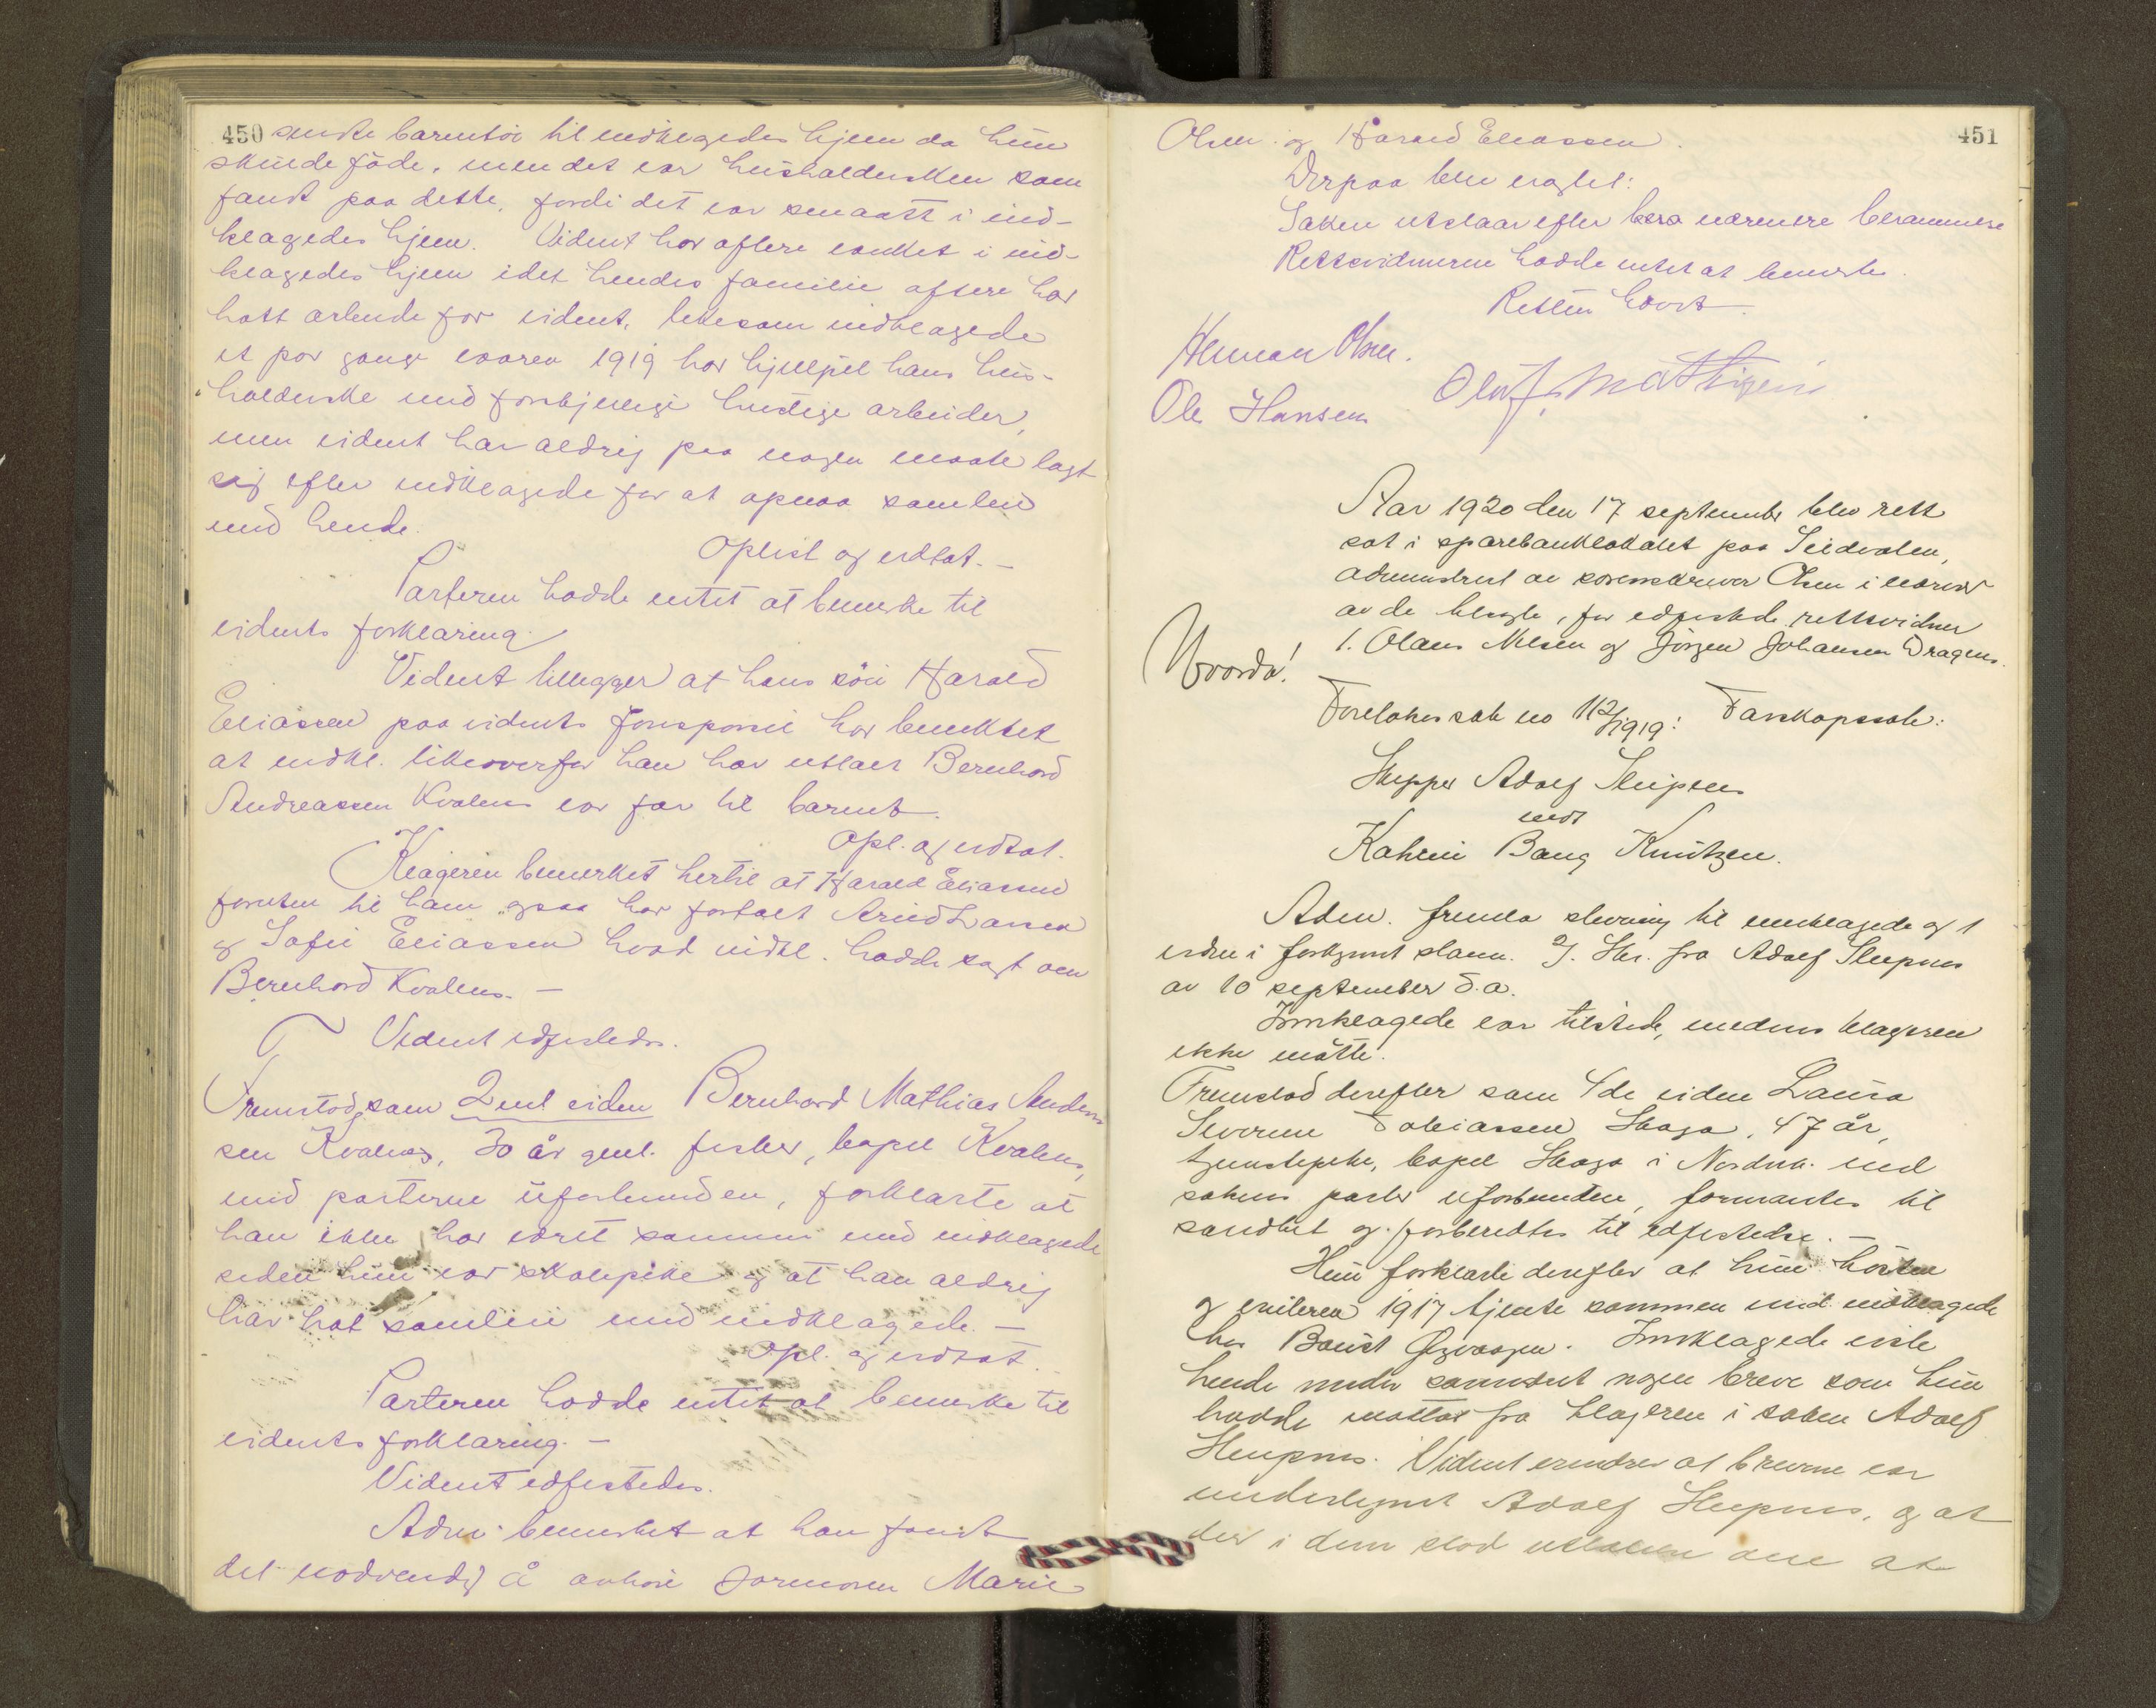 450
sendte barnetöi til indklagedes hjem da hun
skulde föde, men det var husholdersken som
fandt paa dette, fordi det var smaatt i ind-
klagedes hjem. Vidnet har oftere vanket i ind-
klagedes hjem idet hendes familie oftere har
hatt arbeide for vidnet, likesom indklagede
et par gange vaaren 1919 har hjulpet hans hus-
holderske med forskjellige huslige arbeider,
men vidnet har aldrig paa nogen maate lagt
sig efter indklagede for at opnaa samleie
med hende.
Oplest og vedtat. –
Parterne hadde intet at bemerke til
vidnets forklaring.
Vidnet tillegger at hans sön Harald
Eliassen paa vidnets forespørsel har bemerket
at indkl. likeoverfor han har uttalt Bernhard
Andreassen Kvalnes var far til barnet.
Opl. og vedtat.
Klageren bemerket hertil at Harald Eliassen
foruten til ham ogsaa har fortalt Arvid Larsen
og Sofie Eliassen hvad indkl. hadde sagt om
Bernhard Kvalnes. –
Vidnet edfestedes.
Fremstod som 2net vidne Bernhard Mathias Andreas
sen Kvalnes, 30 år gml. fisker, bopæl Kvalnes,
med parterne uforbunden, forklarte at
han ikke har været sammen med indklagede
siden hun var skolepike og at han aldrig
har hat samleie med indklagede. –
Opl. og vedtat.
Parterne hadde intet at bemerke til
vidnets forklaring. –
Vidnet edfestedes.
Adm. bemerket at han fandt
det nødvendig å avhöre jormoren Marie
451
Olsen og Harald Eliassen.
Derpaa blev avsagt:
Saken utstaar efter nærmere berammelse
Rettsvidnerne hadde intet at bemerke.
Retten hævet.
Herman Olsen.
Ole Hansen
Olaf Mathisen
Aar 1920 den 17 september blev rett
sat i sparebanklokalet paa
administrert av sorenskriver Olsen i nærvær
av de tilsagte, før edfestede rettsvidner
1. Olaus Nilsen og Jörgen Johansen Dragnes.
Hvorda!
Foretokes sak no 112/1919: Farskapssak:
Skipper Adolf Sleipnes
mot
Katrine Bang Knutzen.
Adm. fremla stevning til innklagede og 1
vidne i forkynnt stann. 2). Skr. fra Adolf Sleipnes
av 10 september d.a.
Innklagede var tilstede, medens klageren
ikke møtte.
Fremstod derefter som 4de vidne Laura
Severine Tobiassen Skaga, 47 år,
tjenestepike, bopæl Skaga i med
sakens parter uforbunden, formantes til
sandhet og forberedtes til edfestelse. –
Hun forklarte derefter at hun hösten
og vinteren 1917 tjente sammen med indklagede
hos Innklagede viste
hende under samværet nogen breve som hun
hadde mottat fra klageren i saken Adolf
Sleipnes. Vidnet erindrer at brevene var
undertegnet Adolf Sleipnes, og at
der i dem stod uttalelser om at